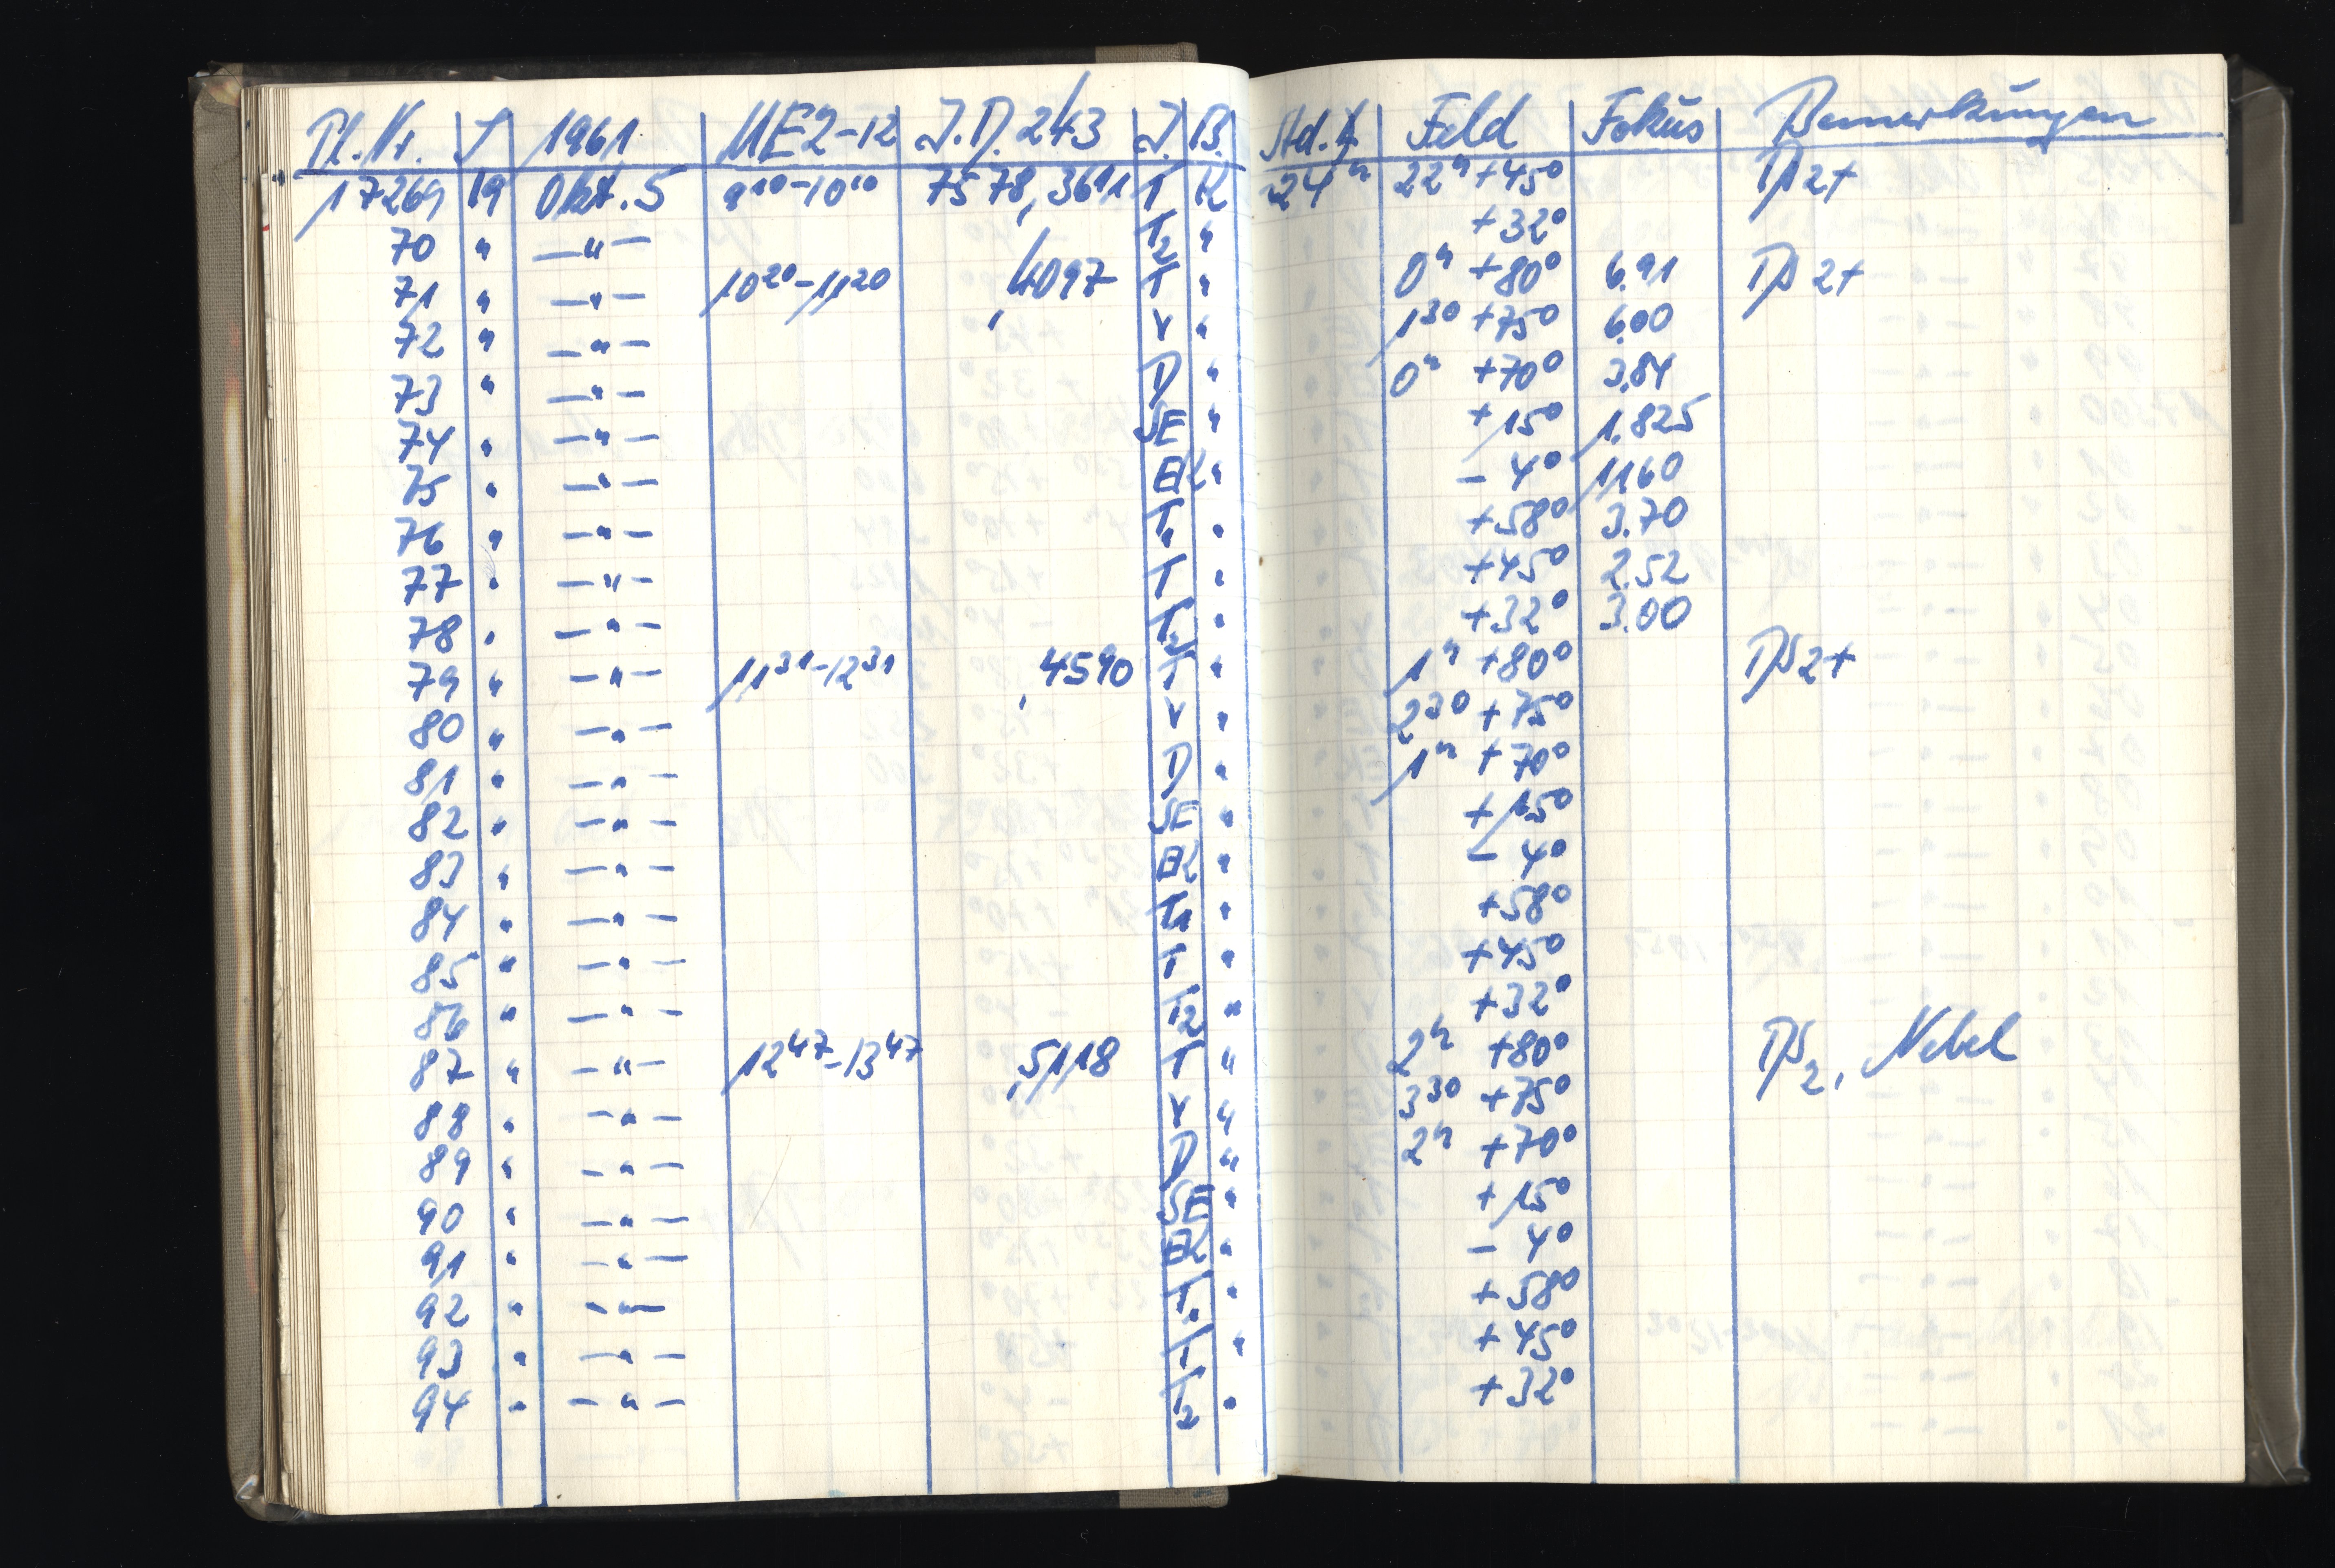 Pl. Nr. S 1961 MEZ-12 J.D. 243 J. B. Std.∢ Feld Fokus Bemerkungen
17269 19 Okt. 5 9¹⁰-10¹⁰ 7578,3611 T K 24ʰ 22ʰ +45° Ds 2+
70 " —"— T₂ " +32°
71 " —"— 10²⁰-11²⁰ ,4097 T " 0ʰ +80° 6.91 Ds 2+
72 " —"— V " 1³⁰ +75° 6.00
73 " —"— D " 0ʰ +70° 3.84
74 " —"— SE " +15° 1.825
75 " —"— EK " - 4° 1160
76 " —"— T₁ " +58° 3.70
77 " —"— T " +45° 2.52
78 " —"— T₂ " +32° 3.00
79 " —"— 11³¹-12³¹ ,4590 T " 1ʰ +80° Ds 2+
80 " —"— V " 2³⁰ +75°
81 " —"— D " 1ʰ +70°
82 " —"— SE " +15°
83 " —"— EK " - 4°
84 " —"— T₁ " +58°
85 " —"— T " +45°
86 " —"— T₂ " +32°
87 " —"— 12⁴⁷-13⁴⁷ ,5118 T " 2ʰ +80° Ds 2, Nebel
88 " —"— V " 3³⁰ +75°
89 " —"— D " 2ʰ +70°
90 " —"— SE " +15°
91 " —"— EK " - 4°
92 " —"— T₁ " +58°
93 " —"— T " +45°
94 " —"— T₂ " +32°